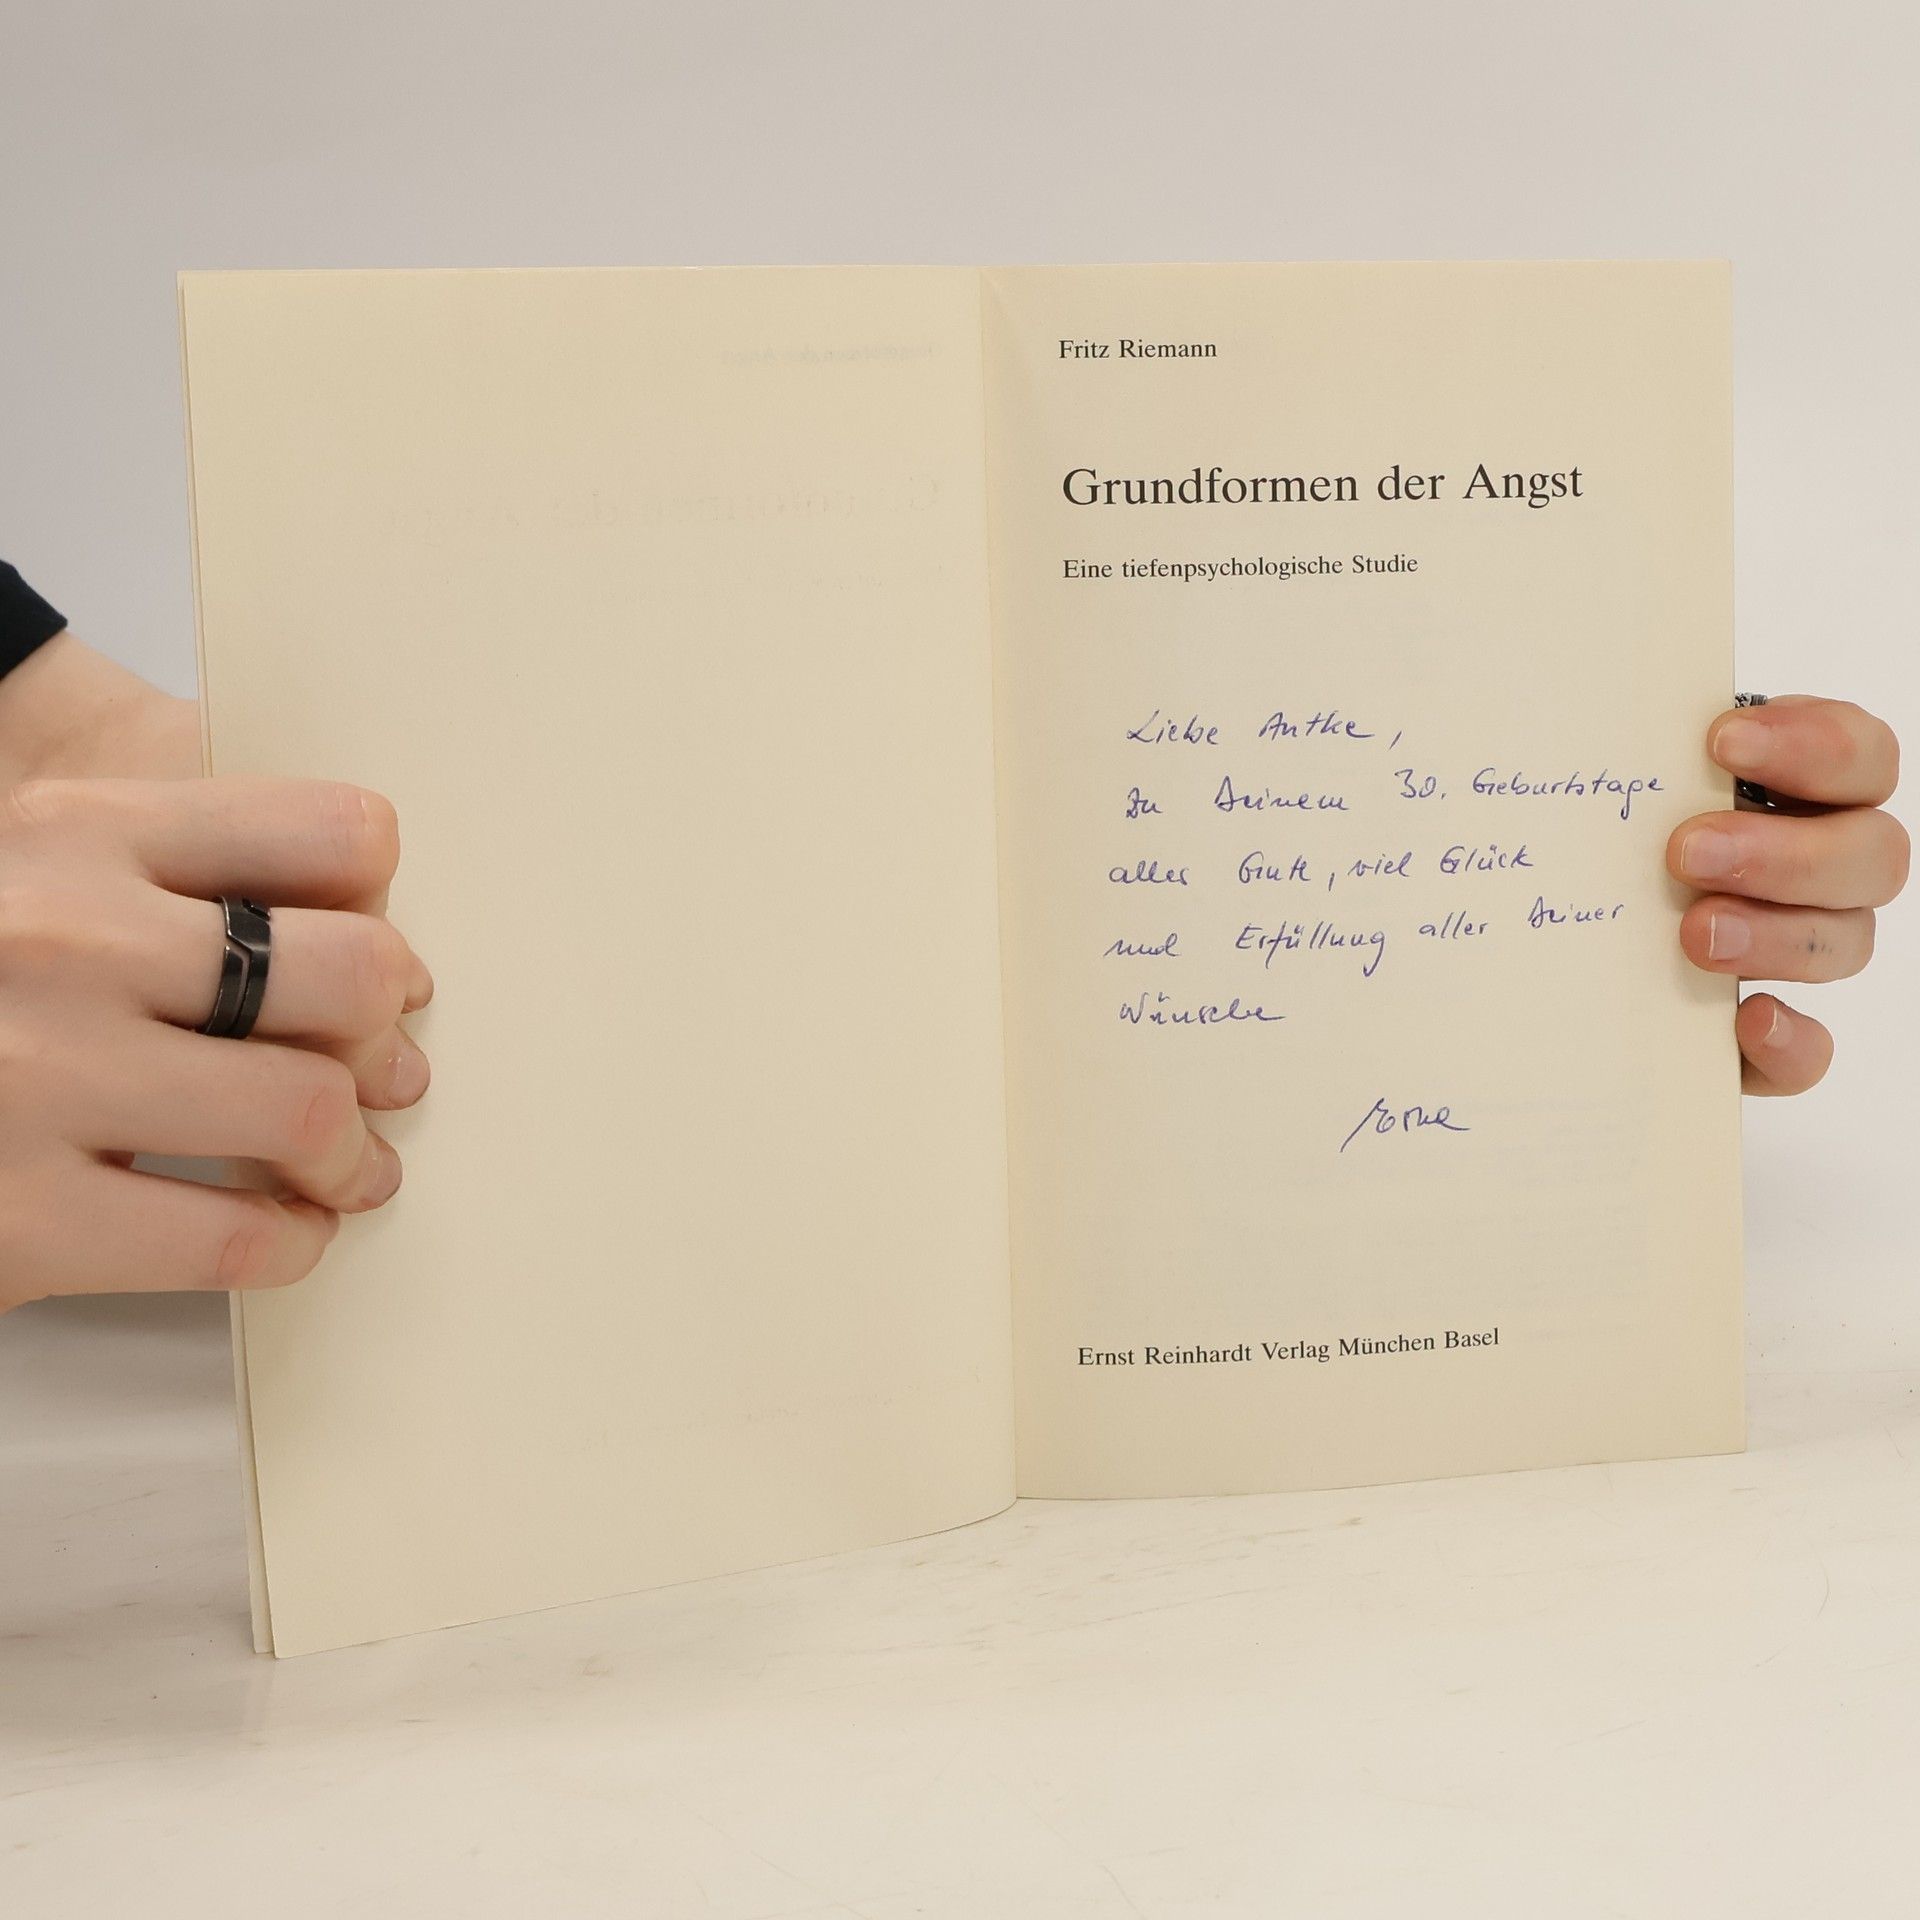 Fritz Riemann
Grundformen der Angst
Eine tiefenpsychologische Studie
Liebe Antke,
Zu Deinem 30. Geburtstage
alles Gute, viel Glück
und Erfüllung aller Deiner
Wünsche
Ernst Reinhardt Verlag München Basel